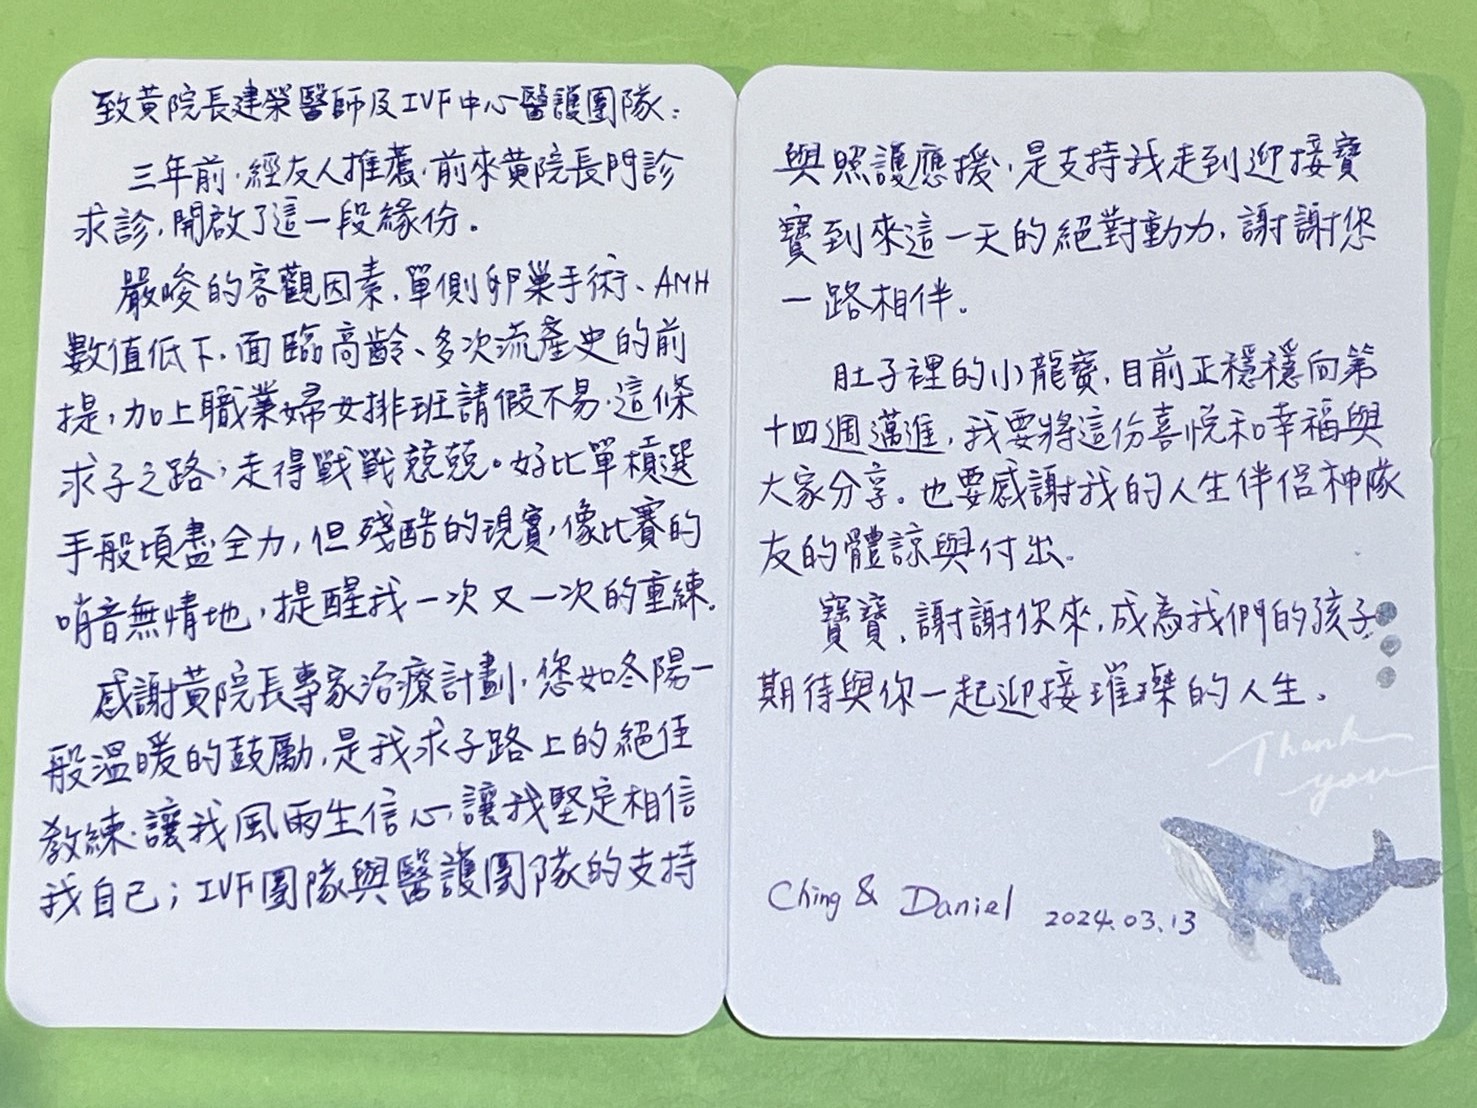 致黃院長建榮醫師及IVF中心醫護團隊:
三年前,經友人推薦,前來黃院長門診
求診,開啟了這一段緣份。
嚴峻的客觀因素,單側卵巢手術、AMH
數值低下,面臨高齡、多次流產史的前
提,加上職業婦女排班請假不易,這條
求子之路;走得戰戰兢兢。好比單槓選
手般傾盡全力,但殘酷的現實,像比賽的
哨音無情地,提醒我一次又一次的重練。
感謝黃院長專家治療計劃,您如冬陽一
般溫暖的鼓勵,是我求子路上的絕佳
教練,讓我風雨生信心,讓我堅定相信
我自己;IVF團隊與醫護團隊的支持
與照護應援,是支持我走到迎接寶
寶到來這一天的絕對動力,謝謝您
一路相伴。
肚子裡的小龍寶,目前正穩穩向第
十四週邁進,我要將這份喜悅和幸福與
大家分享。也要感謝我的人生伴侶神隊
友的體諒與付出。
寶寶,謝謝你來,成為我們的孩子
期待與你一起迎接璀璨的人生。
Thank
you
Ching & Daniel 2024.03.13